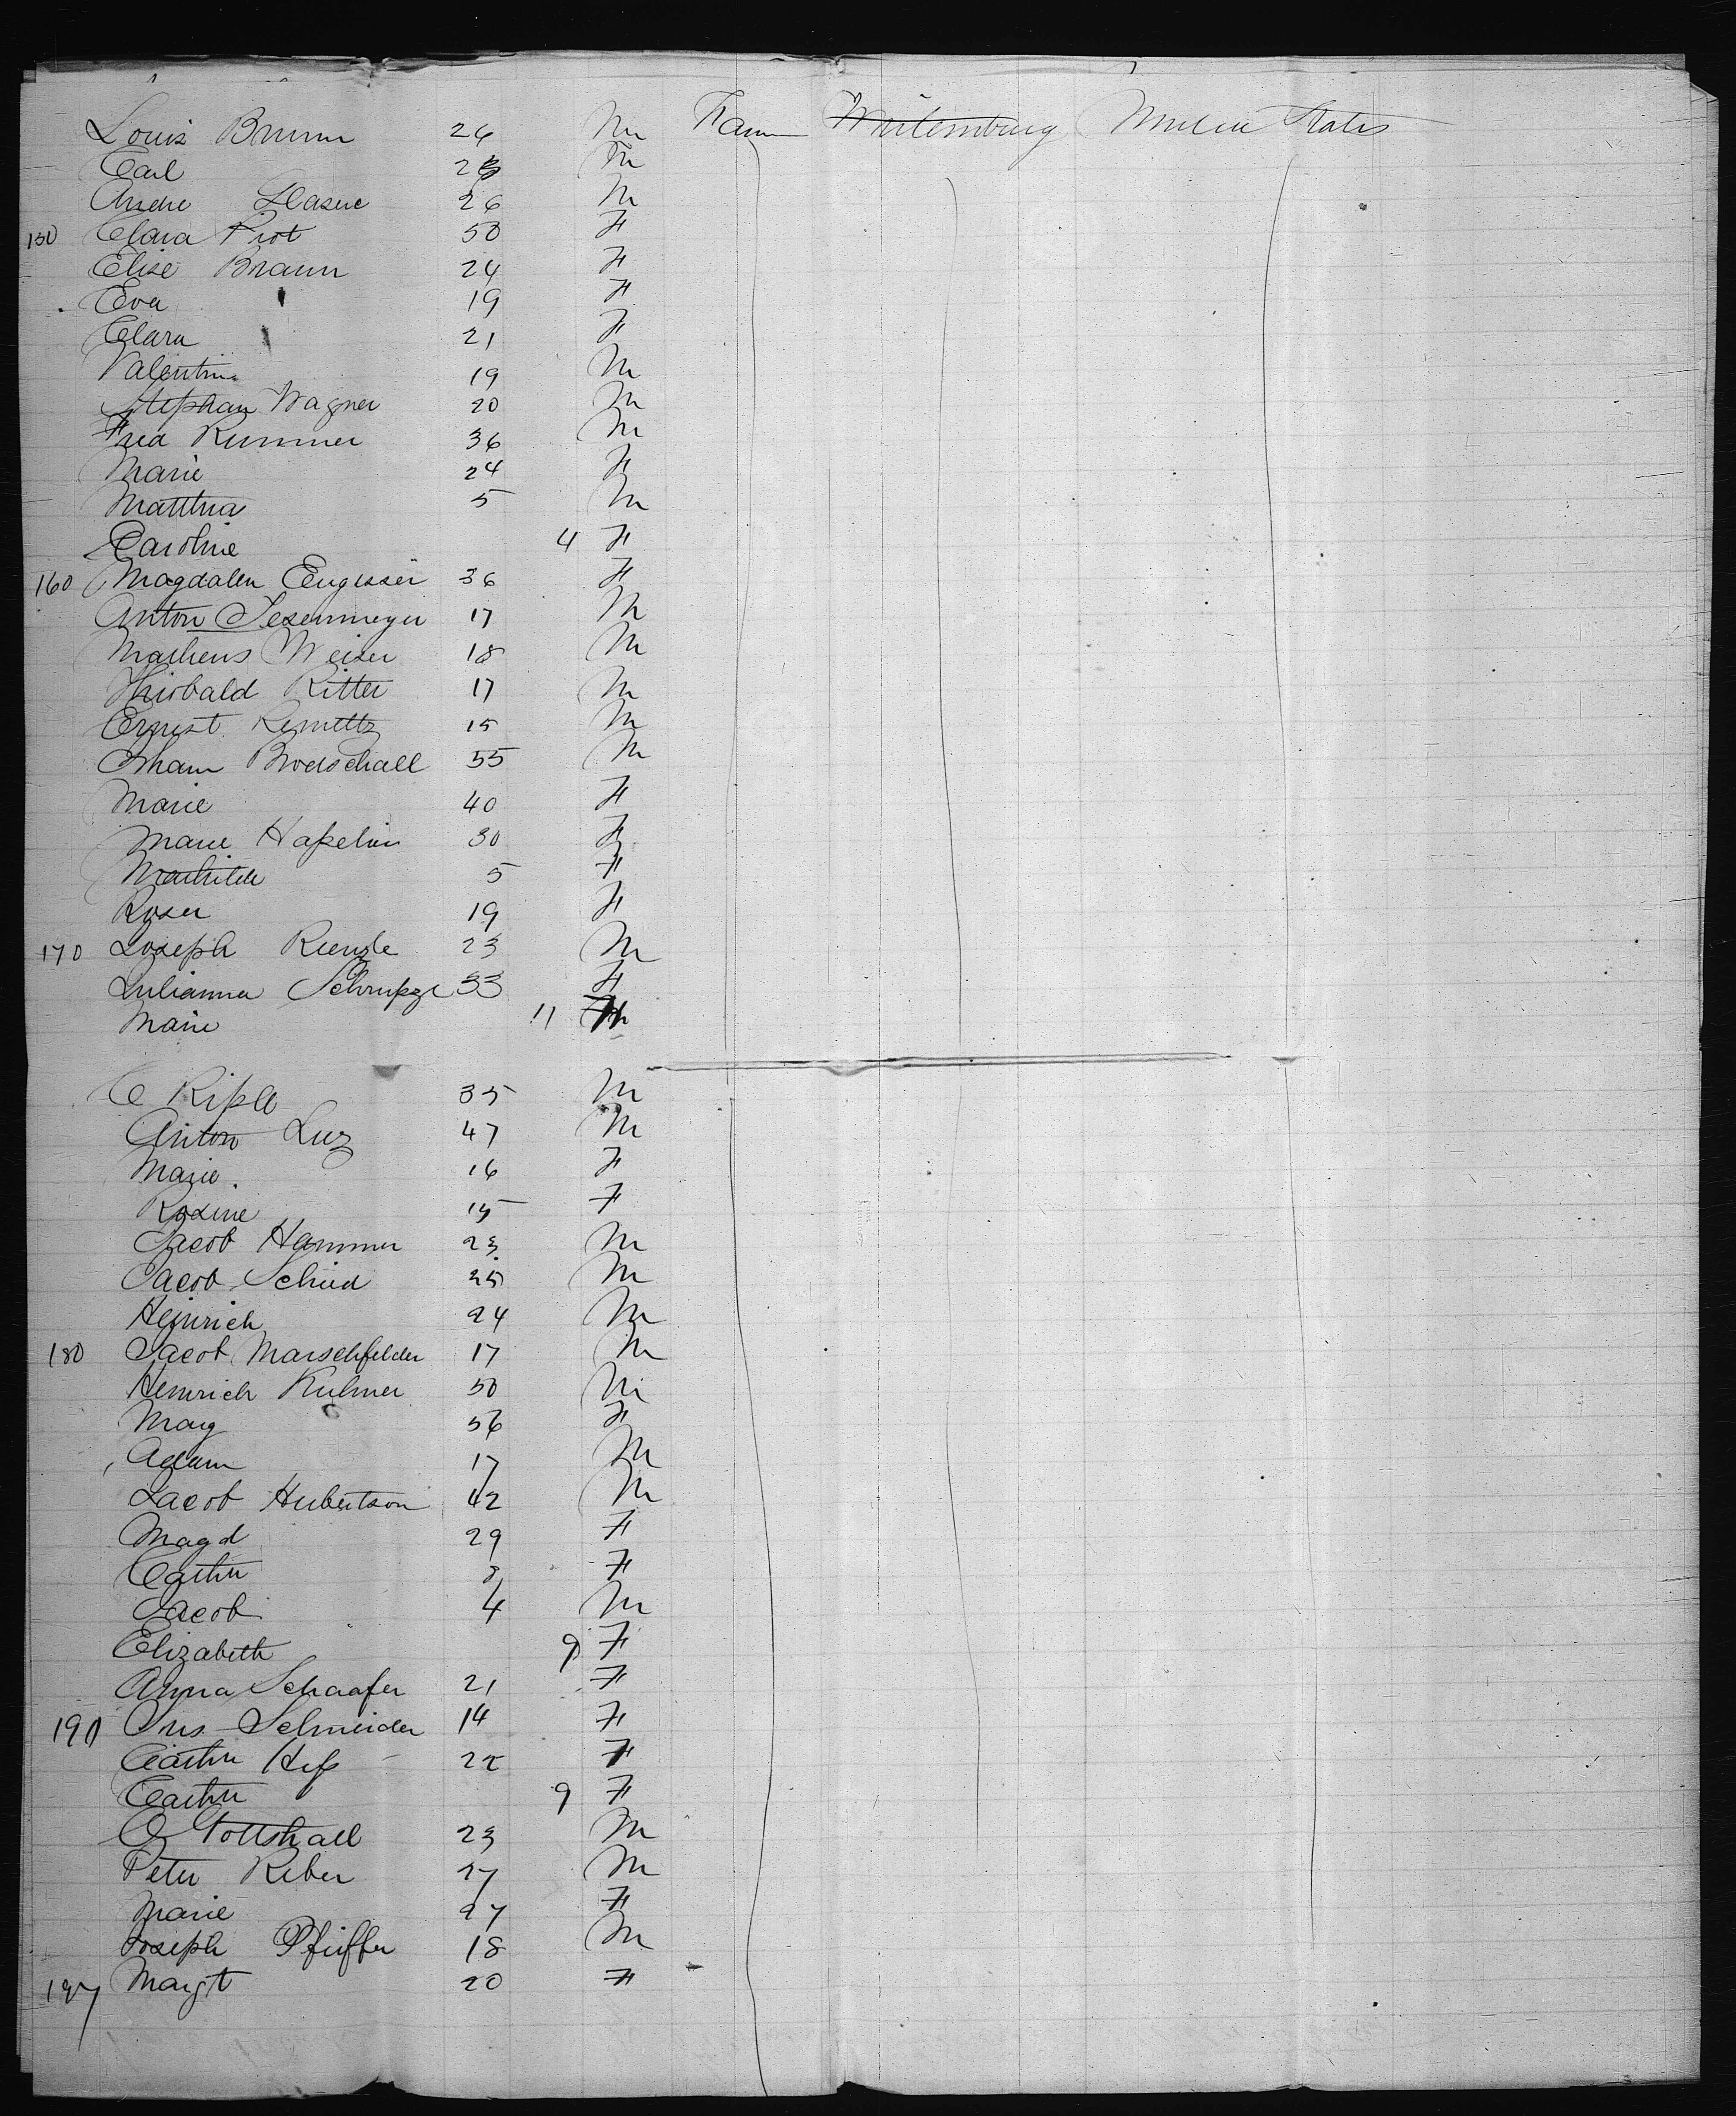 Louis Brunn 26 M Farm Würtemburg United States
Carl 23 M
Andre 26 M
150 Clara Piot 50 F
Elise Braun 24 F
Eva 19 F
Clara 21 F
Valentin 19 M
Stephan Wagner 20 M
Fred Rummer 36 M
Marie 24 F
Matthia 5 M
Caroline 4 F
160 Magdalen 36 F
Anton Tesenmeyer 17 M
Matheus Weiser 18 M
Thiobald Ritter 17 M
Ernest 15 M
55 M
Marie 40 F
Marie 30 F
Mathilde 5 F
Roser 19 F
170 Joseph Rienzle 23 M
Julianna 33 F
Marie 11
C 35 M
Anton Luz 47 M
Marie. 16 F
Rosine 15 F
Jacob Hammer 23 M
Jacob Schied 25 M
Heinrich 24 M
180 Jacob Marschfelder 17 M
Heinrich Kulmer 50 M
Marg 56 F
Adam 17 M
Jacob Hubertson 42 M
Magd 29 F
Cathr 8 F
Jacob 4 M
Elizabeth 9 F
Anna Schaafer 21 F
190 Schneider 14 F
Cathr Heſs 22 F
Cathr 9 F
C Gottshall 23 M
Peter Reber 27 M
Marie 27 F
Joseph Pfeiffer 18 M
197 Margt 20 F